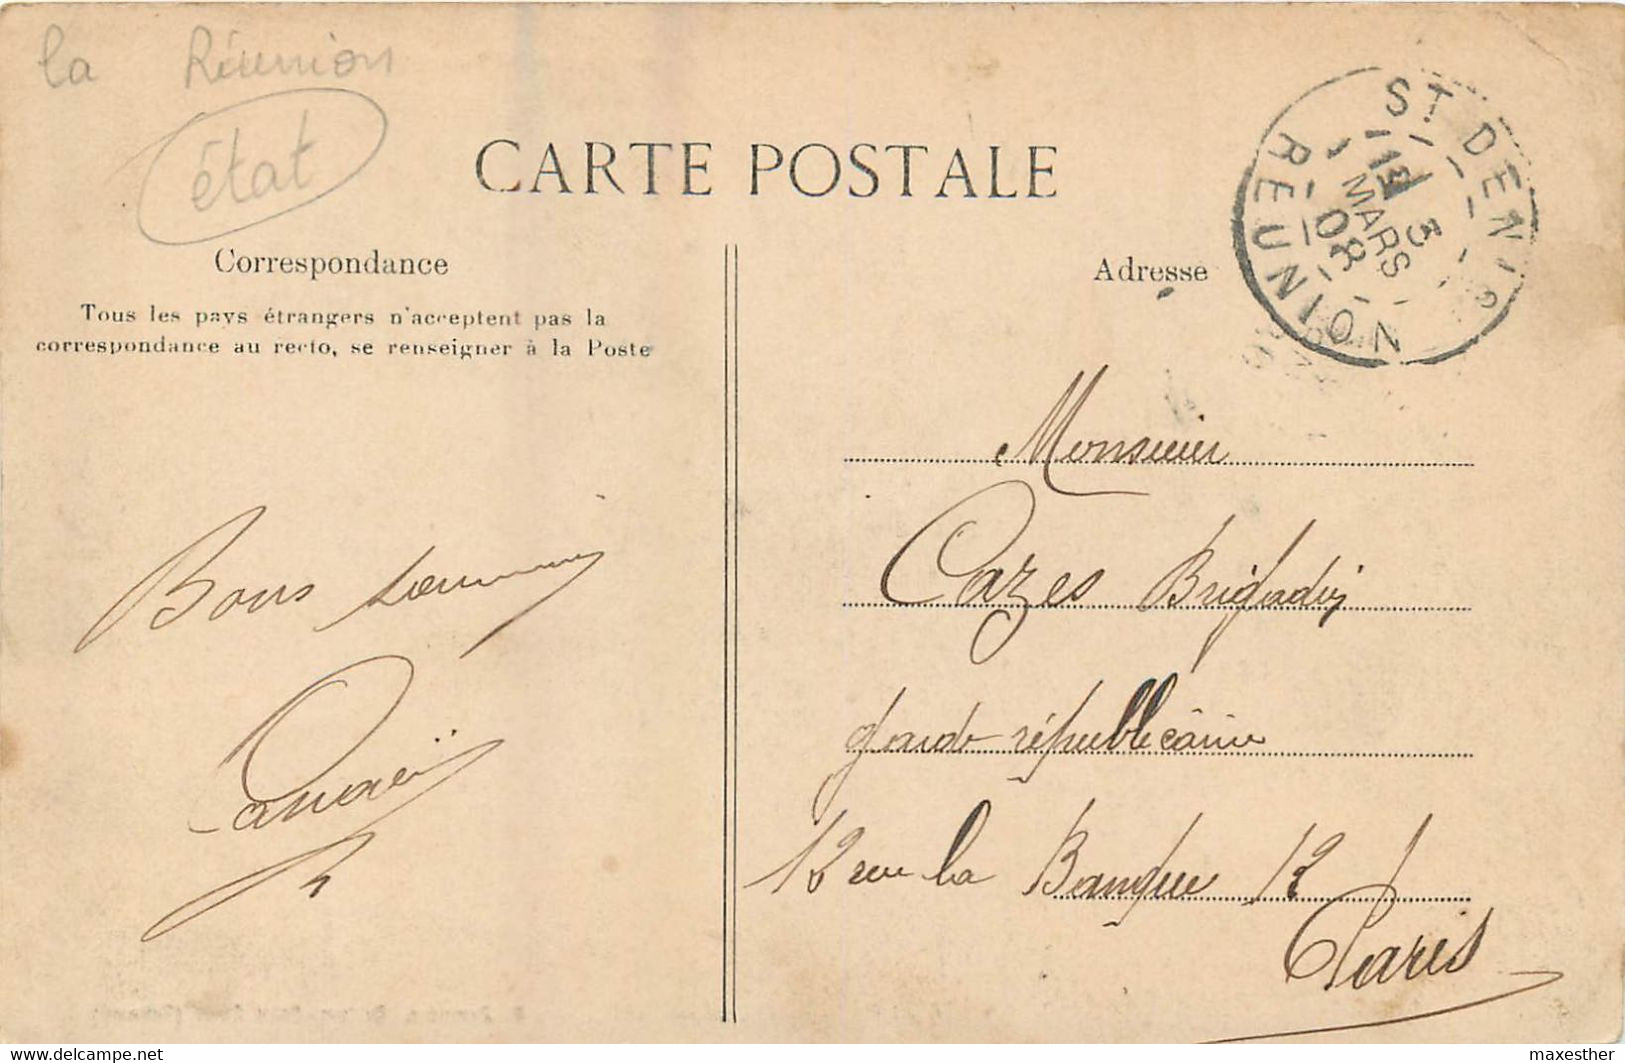 la Réunion
état
CARTE POSTALE
Correspondance
Tous les pays étrangers n'acceptent pas la
correspondance au recto, se renseigner à la Poste
Bons
Adresse
ST DENIS
13
3
MARS
08
REUNION
Monsieur
Cazes Brigadier
garde républicaine
12 rue la Banque 12
Paris
delcampe.net
maxesther